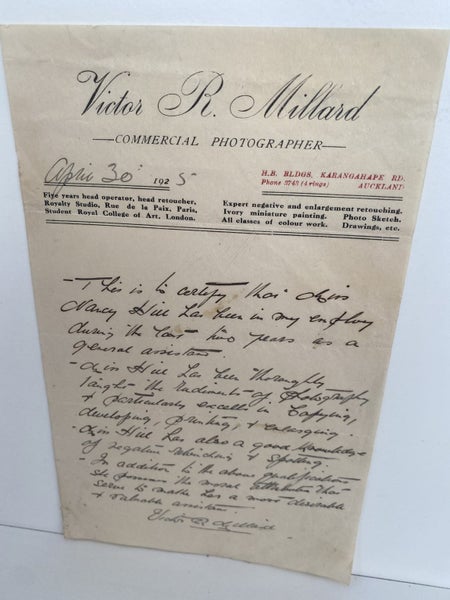 Victor R. Millard
COMMERCIAL PHOTOGRAPHER
April 30 1925
H.B. BLDGS. KARANGAHAPE RD.
Phone 3743 (4 rings) AUCKLAND
Five years head operator, head retoucher,
Royalty Studio, Rue de la Paix, Paris,
Student Royal College of Art, London.
Expert negative and enlargement retouching.
Ivory miniature painting. Photo Sketch.
All classes of colour work. Drawings, etc.
This is to certify that Miss
Nancy Hill has been in my employ
during the last two years as a
general assistant.
Miss Hill has been thoroughly
taught the rudiments of photography
& particularly excells in Copying,
developing, printing, & enlarging.
Miss Hill has also a good knowledge
of negative retouching & spotting.
In addition to the above qualifications
she possesses the moral attributes that
serve to make her a most desirable
& valuable assistant.
Victor R. Millard